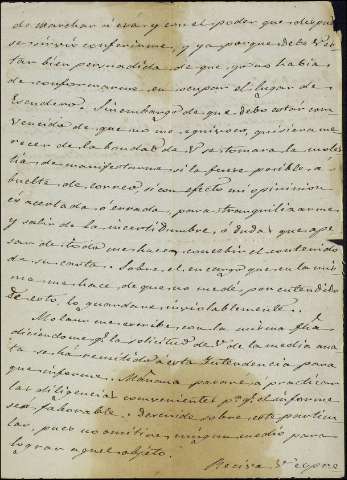 de marchar á esa, y en el poder que despues
se sirvió conferirme, y ya porque debe V. es-
tar bien persuadida de que yo no habia
de conformarme en ocupar el lugar de
Escudero. Sin embargo de que debo estar con-
vencida de que no me equivoco, quisiera me-
recer de la bondad de V. se tomara la moles-
tia de manifestarme si la fuese posible, á
buelta de correo, si con efecto mi opinion
es acertada ó errada, para tranquilizarme
y salir de la incertidumbre, ó duda que ape-
sar de todo me hacen concebir el contenido
de su carta. Sobre el encargo que en la mis-
ma me hace de que no me dé por entendido
de esto, lo guardaré inviolablemente.
me escribe con la misma fha
diciendome q.e la solicitud de V. de la media ana-
ta se ha remitido á esta Intendencia para
que informe. Mañana pasaré á practicar
las diligencias convenientes p.a q.e el informe
sea faborable. Descuide sobre este particu-
lar, pues no omitiré ningun medio para
lograr aquel objeto.
Reciva V.